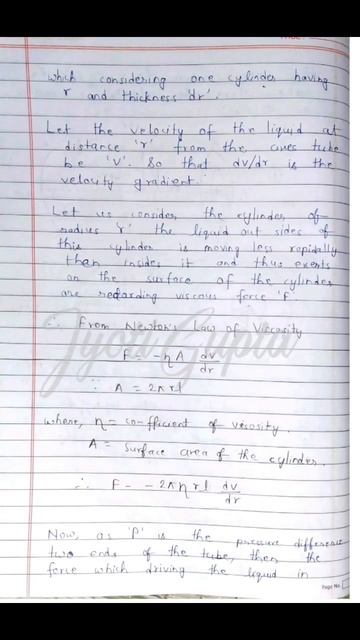 which considering one cylinder having
r and thickness 'dr'.
Let the velocity of the liquid at
distance 'r' from the axes tube
be 'V'. So that dv/dr is the
velocity gradient.
Let us consider the cylinder of
radius 'r' the liquid out sides of
this cylinder is moving less rapidally
then insides it and thus exerts
on the surface of the cylinder
are redarding viscous force 'F'.
∴ From Newton's Law of Viscosity
F = -ηA dv/dr
∵ A = 2πrl
where, η = co-fficient of viscosity.
A = Surface area of the cylinder.
∴ F = -2πηrl dv/dr
Now, as 'P' is the pressure difference
two ends of the tube, then the
force which driving the liquid in
Jyoti Gupta
Page No.